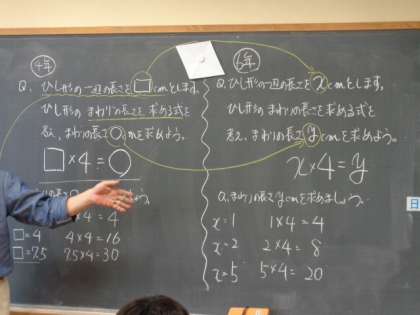 4年
Q. ひし形の一辺の長さを□cmとします。
ひし形のまわりの長さを求める式を
まわりの長さ○cmを求めよう。
□×4=○
×4=4
□=4 4×4=16
□=7.5 7.5×4=30
6年
Q. ひし形の一辺の長さをxcmとします。
ひし形のまわりの長さを求める式を
まわりの長さycmを求めよう。
x×4=y
Q. まわりの長さycmを求めましょう。
x=1 1×4=4
x=2 2×4=8
x=5 5×4=20
日